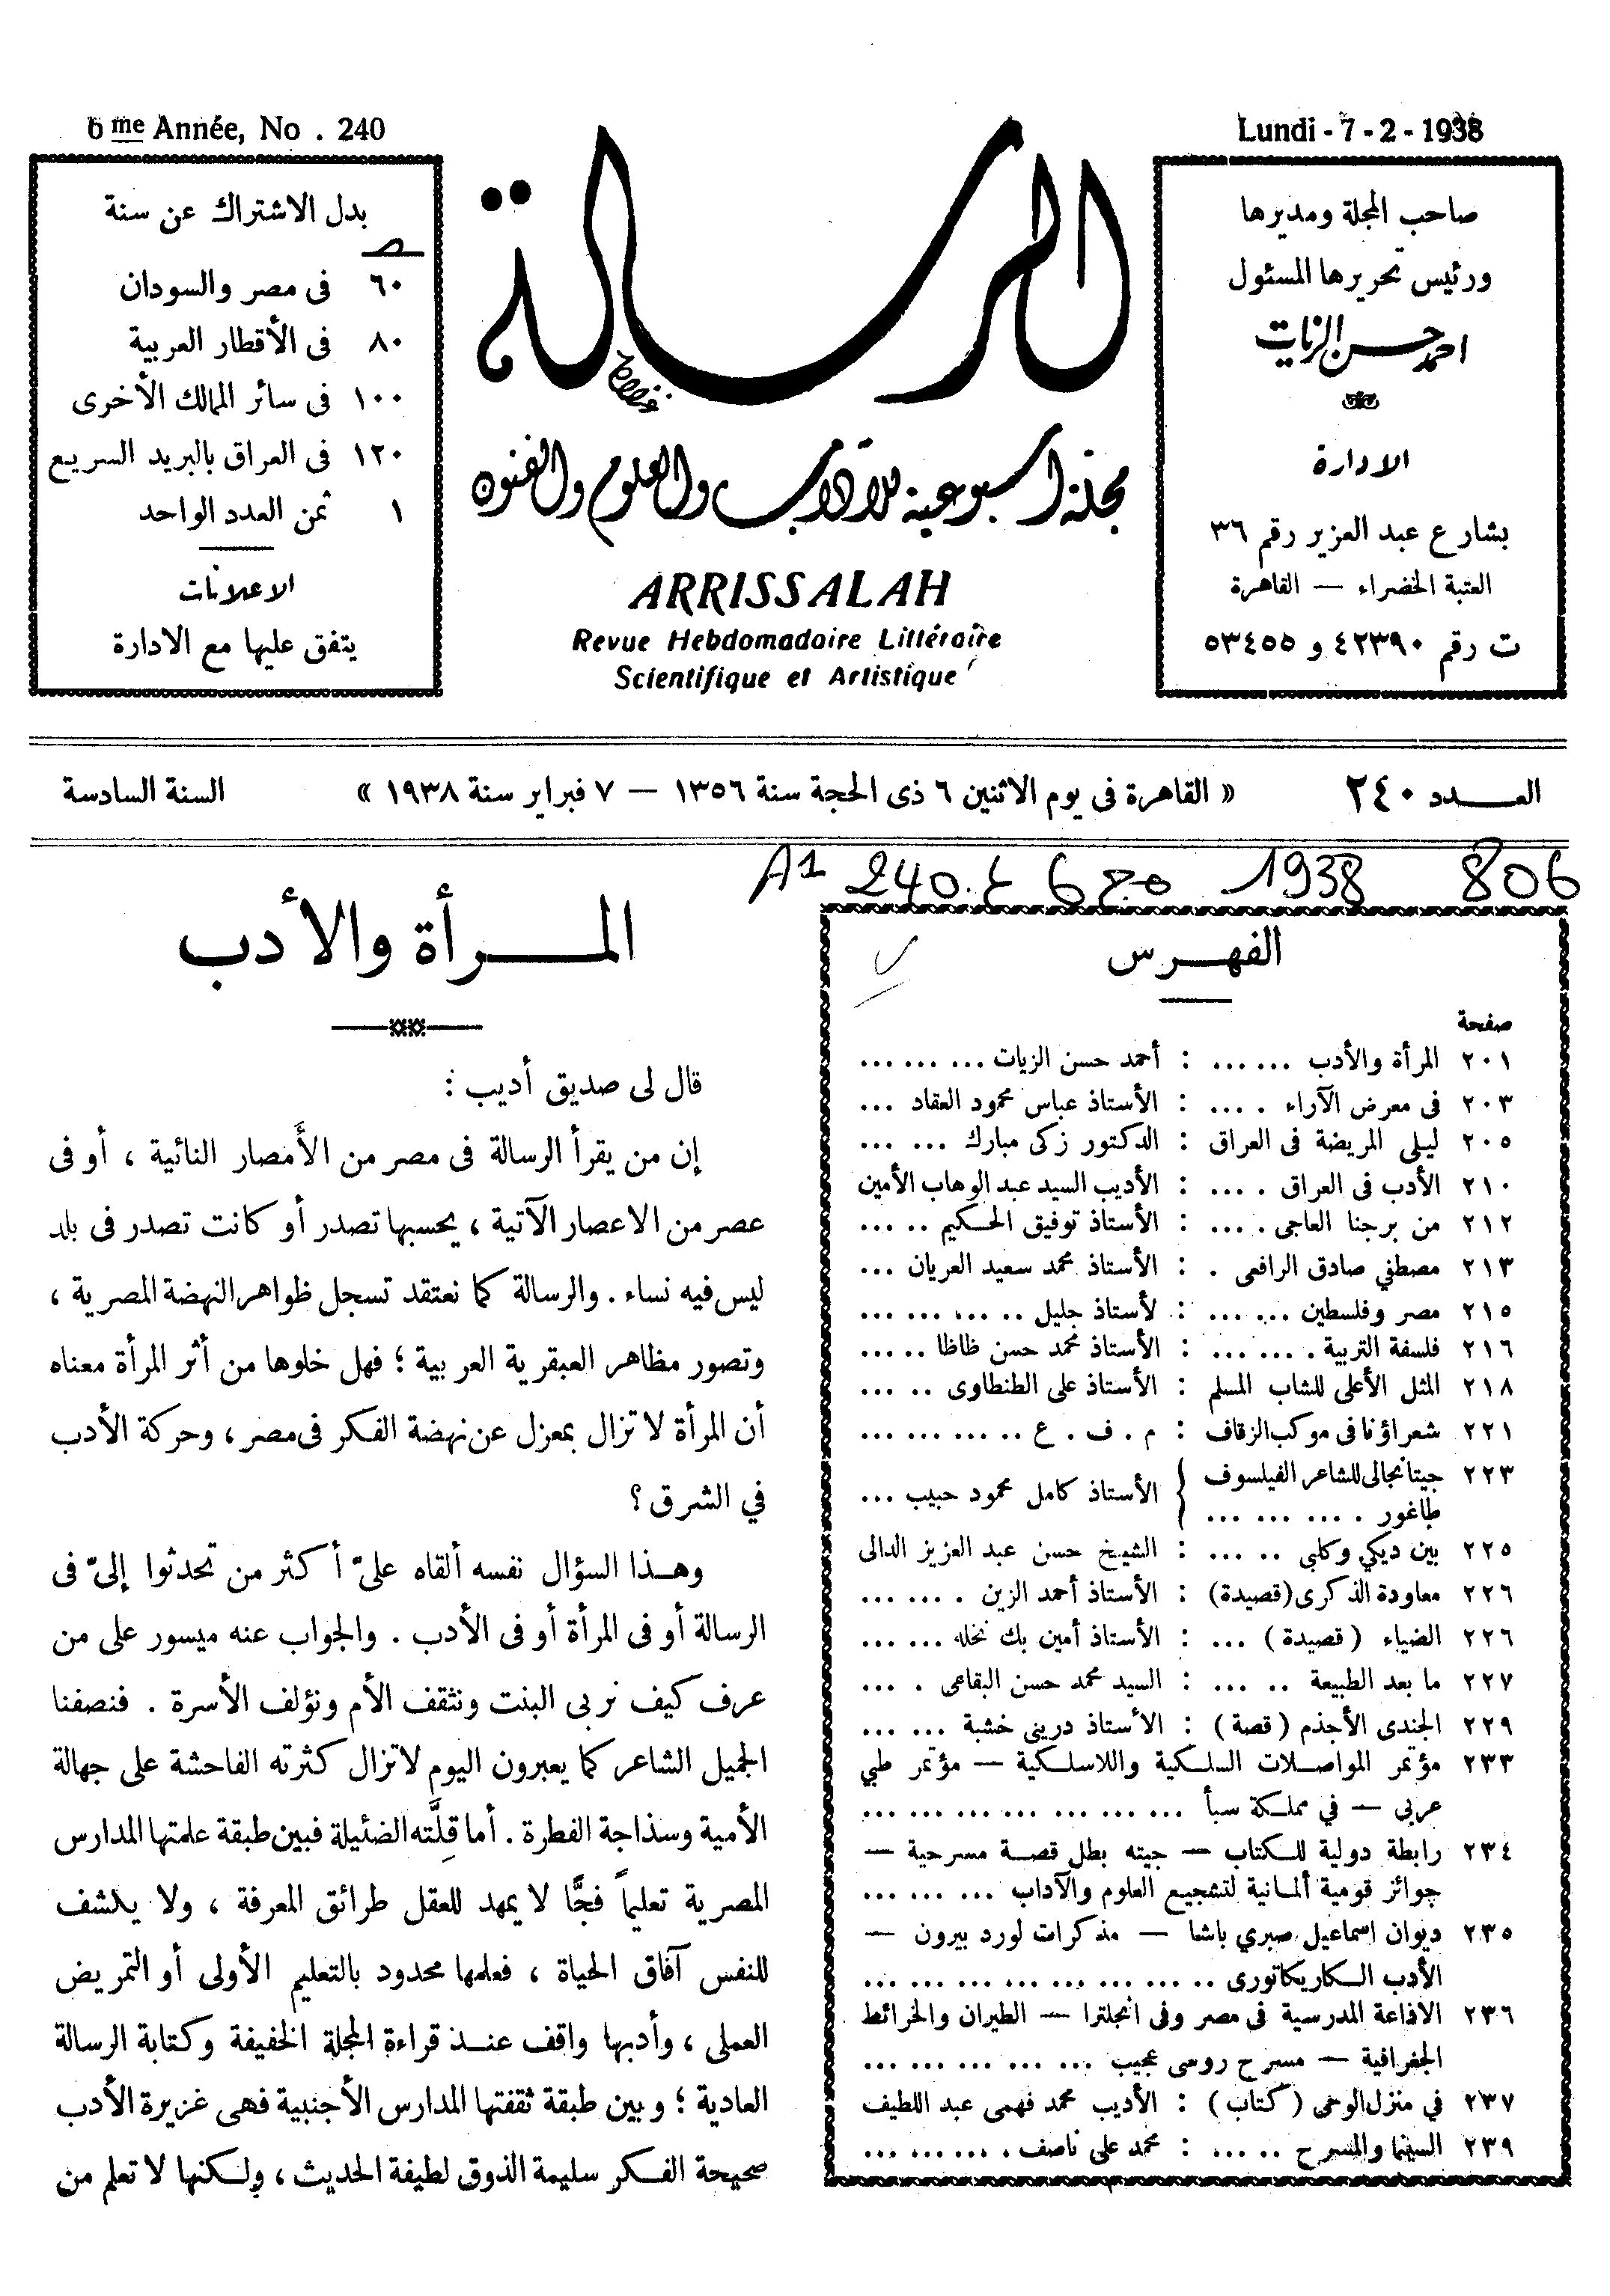 6me Année, No . 240
Lundi - 7 - 2 - 1938
صاحب المجلة ومديرها
ورئيس تحريرها المسئول
احمد حسن الزيات
الادارة
بشارع عبد العزيز رقم ٣٦
العتبة الخضراء — القاهرة
ت رقم ٤٢٣٩٠ و ٥٣٤٥٥
الرسالة
مجلة أسبوعية للآداب والعلوم والفنون
ARRISSALAH
Revue Hebdomadaire Littéraire
Scientifique et Artistique
بدل الاشتراك عن سنة
ص
٦٠ فى مصر والسودان
٨٠ فى الأقطار العربية
١٠٠ فى سائر الممالك الأخرى
١٢٠ فى العراق بالبريد السريع
١ ثمن العدد الواحد
الاعلانات
يتفق عليها مع الادارة
العـــدد ٢٤٠ « القاهرة فى يوم الاثنين ٦ ذى الحجة سنة ١٣٥٦ — ٧ فبراير سنة ١٩٣٨ » السنة السادسة
A1 240.ع 6 مج 1938 806
الفهـرس
صفحة
٢٠١ المرأة والأدب ... ... : أحمد حسن الزيات ... ... ...
٢٠٣ فى معرض الآراء . ... : الأستاذ عباس محمود العقاد ...
٢٠٥ ليلى المريضة فى العراق : الدكتور زكى مبارك ... ...
٢١٠ الأدب فى العراق . ... : الأديب السيد عبد الوهاب الأمين
٢١٢ من برجنا العاجى . ... : الأستاذ توفيق الحكيم .. ...
٢١٣ مصطفي صادق الرافعى . : الأستاذ محمد سعيد العريان ...
٢١٥ مصر وفلسطين ... ... : لأستاذ جليل .. ... ... ...
٢١٦ فلسفة التربية . ... ... : الأستاذ محمد حسن ظاظا .. ...
٢١٨ المثل الأعلى للشاب المسلم : الأستاذ على الطنطاوى .. ...
٢٢١ شعراؤنا فى موكب الزفاف : م . ف . ع .. ... ... ...
٢٢٣ جيتانجالى للشاعر الفيلسوف
طاغور . ... ... ... } الأستاذ كامل محمود حبيب ...
٢٢٥ بين ديكي وكلبي .. ... : الشيخ حسن عبد العزيز الدالى
٢٢٦ معاودة الذكرى (قصيدة) : الأستاذ أحمد الزين . ... ...
٢٢٦ الضياء ( قصيدة ) ... : الأستاذ أمين بك نخله ... ...
٢٢٧ ما بعد الطبيعة .. ... : السيد محمد حسن البقاعى . ...
٢٢٩ الجندى الأجذم ( قصة ) : الأستاذ درينى خشبة ... ...
٢٣٣ مؤتمر المواصلات السلكية واللاسلكية — مؤتمر طبي
عربى — في مملكة سبأ ... ... ... ... ... ... ...
٢٣٤ رابطة دولية للكتاب — جيته بطل قصة مسرحية —
جوائز قومية ألمانية لتشجيع العلوم والآداب ... ... ...
٢٣٥ ديوان اسماعيل صبري باشا — مذكرات لورد بيرون —
الأدب الكاريكاتورى .. ... ... ... ... ... ...
٢٣٦ الاذاعة المدرسية فى مصر وفى انجلترا — الطيران والخرائط
الجغرافية — مسرح روسى عجيب ... ... ... ... ...
٢٣٧ في منزل الوحى ( كتاب ) : الأديب محمد فهمى عبد اللطيف
٢٣٩ السينما والمسرح .. ... : محمد على ناصف . ... ... ...
المـــرأة والأدب
قال لى صديق أديب :
إن من يقرأ الرسالة فى مصر من الأَمصار النائية ، أو فى
عصر من الاعصار الآتية ، يحسبها تصدر أو كانت تصدر فى بلد
ليس فيه نساء . والرسالة كما نعتقد تسجل ظواهر النهضة المصرية ،
وتصور مظاهر العبقرية العربية ؛ فهل خلوها من أثر المرأة معناه
أن المرأة لا تزال بمعزل عن نهضة الفكر فى مصر ، وحركة الأدب
في الشرق ؟
وهـذا السؤال نفسه ألقاه علىّ أكثر من تحدثوا إلىّ فى
الرسالة أو فى المرأة أو فى الأدب . والجواب عنه ميسور على من
عرف كيف نربى البنت ونثقف الأم ونؤلف الأسرة . فنصفنا
الجميل الشاعر كما يعبرون اليوم لا تزال كثرته الفاحشة على جهالة
الأمية وسذاجة الفطرة . أما قِلَّته الضئيلة فبين طبقة علمتها المدارس
المصرية تعليماً فجًّا لا يمهد للعقل طرائق المعرفة ، ولا يكشف
للنفس آفاق الحياة ، فعلمها محدود بالتعليم الأولى أو التمريض
العملى ، وأدبها واقف عنـذ قراءة المجلة الخفيفة وكتابة الرسالة
العادية ؛ وبين طبقة ثقفتها المدارس الأجنبية فهى غزيرة الأدب
صحيحة الفـكر سليمة الذوق لطيفة الحديث ، ولـكنها لا تعلم من